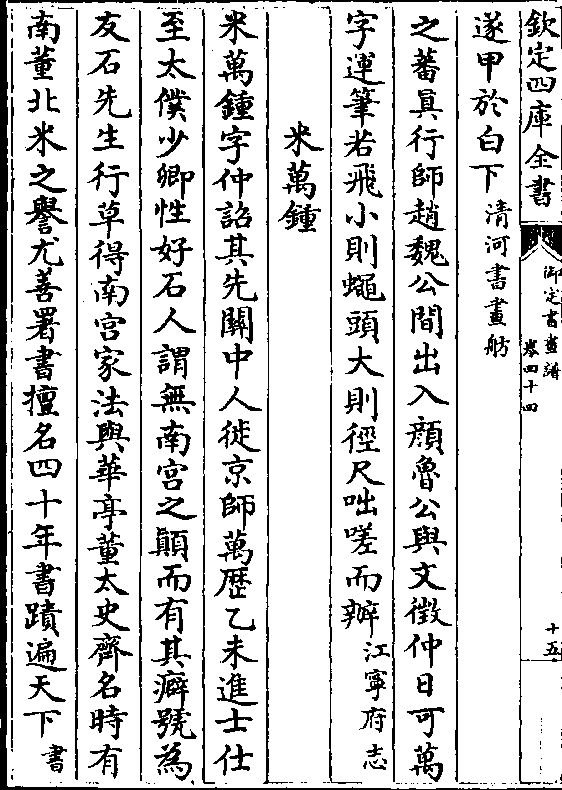 欽定四庫全書
御定書畫譜
卷四十四
十五
遂甲於白下清河書畫舫
之蕃真行師趙魏公間出入顔魯公與文徴仲日可萬
字運筆若飛小則蠅頭大則徑尺咄嗟而辦江寧府志
米萬鍾
米萬鍾字仲詔其先關中人徙京師萬歴乙未進士仕
至太僕少卿性好石人謂無南宫之顛而有其癖號為
友石先生行草得南宫家法與華亭董太史齊名時有
南董北米之譽尤善署書擅名四十年書蹟遍天下書